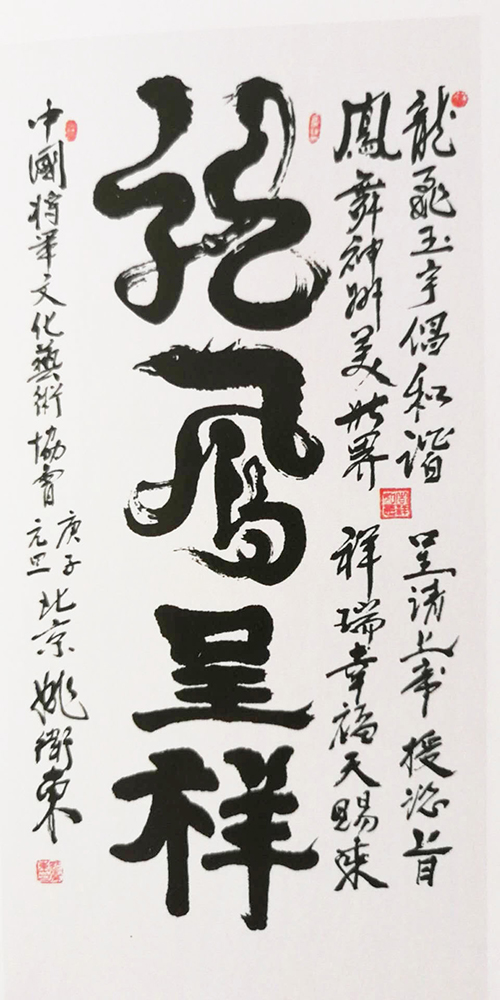 龍飛玉宇倡和諧
呈請上帝授諮旨
鳳舞神州美世界
祥瑞幸福天賜來
龍鳳呈祥
中國将軍文化藝術協會
庚子元旦北京姚衛東